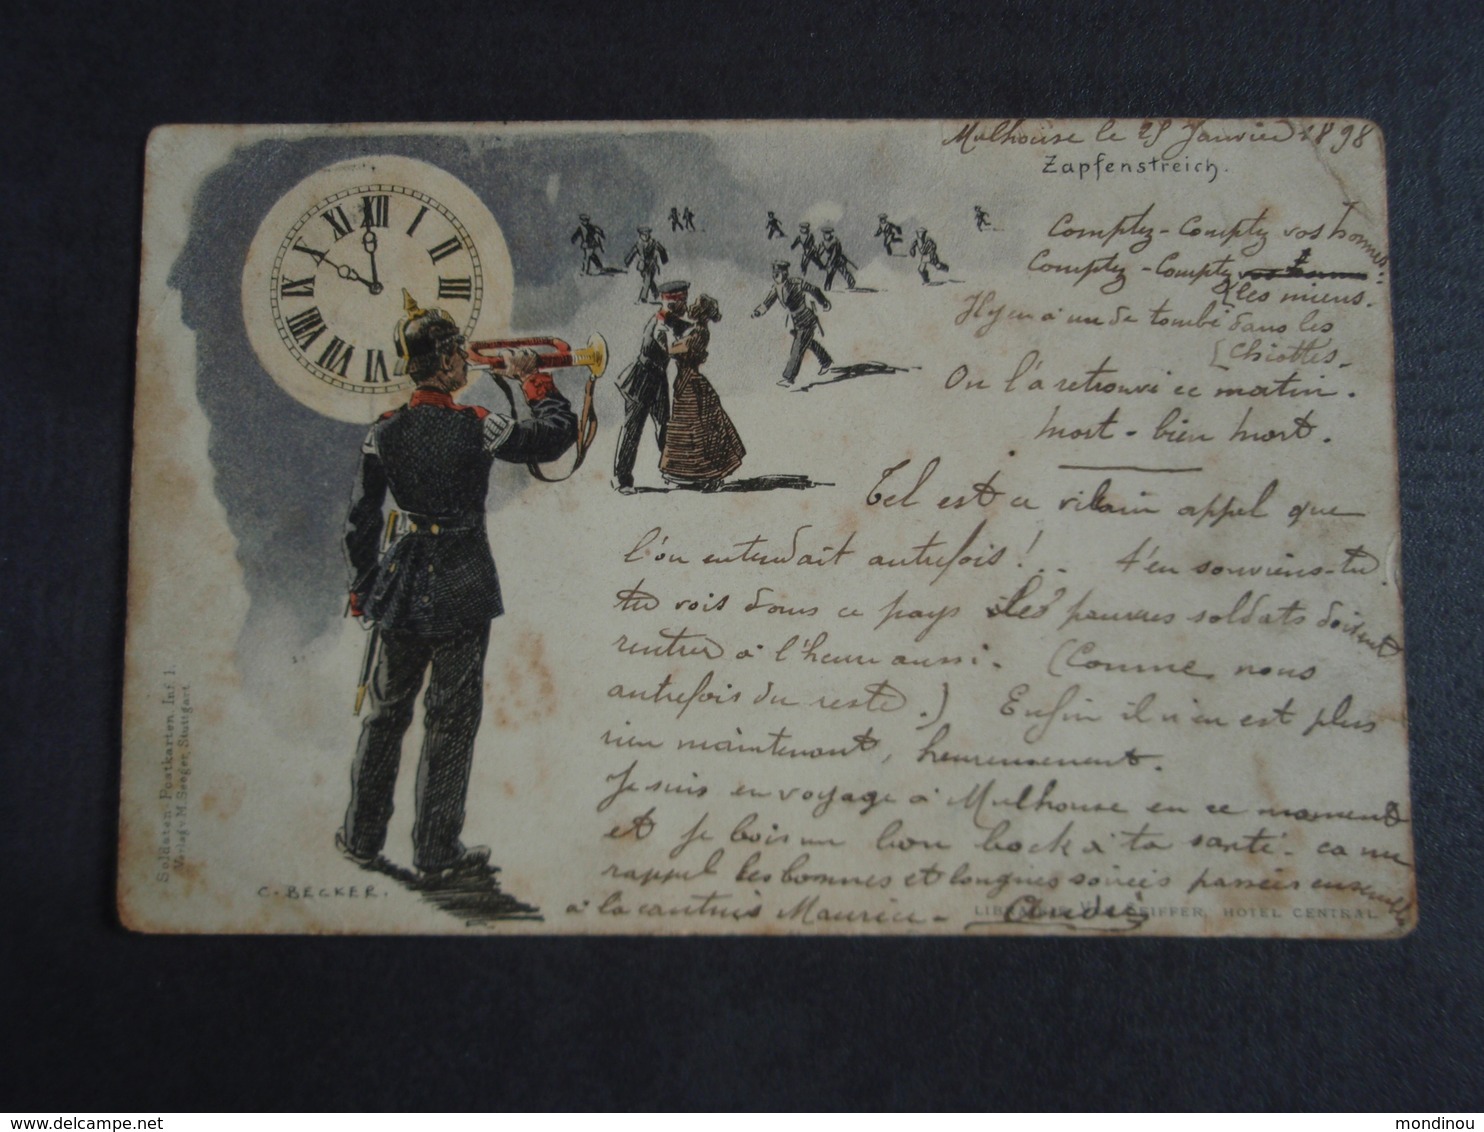 Mulhouse le 25 Janvier 1898
Zapfenstreich.
Comptez-Comptez vos hommes.
Comptez-Comptez
les miens.
Il y en a un de tombé dans les
chiottes-
On l'a retrouvé ce matin.
mort-bien mort.
Tel est ce vilain appel que
l'on entendait autrefois!... t'en souviens-tu.
tu vois dans ce pays les pauvres soldats doivent
rentrer à l'heure aussi. (Comme nous
autrefois du reste.) Enfin il n'en est plus
rien maintenant, heureusement.
Je suis en voyage à Mulhouse en ce moment
et je bois un bon bock à ta santé- ca me
rappel les bonnes et longues soirées passées ensemble
à la cantinis Maurice- André
XII
I
II
III
VI
VII
VIII
IX
X
XI
C. BECKER.
Soldaten Postkarten Inf. 1.
Verlag v. M. Seeger, Stuttgart
HOTEL CENTRAL
mondinou